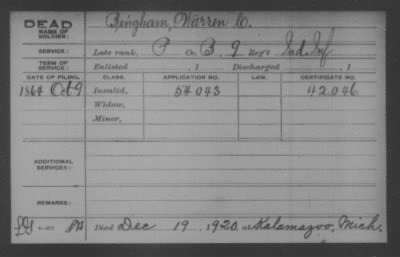 DEAD Bingham, Warren C.
NAME OF SOLDIER:
SERVICE: Late rank, P Co. B, 9 Reg't Ind. Inf
TERM OF SERVICE: Enlisted , 1 Discharged , 1
DATE OF FILING. CLASS. APPLICATION NO. LAW. CERTIFICATE NO.
1864 Oct 9 Invalid, 54043 42.046
Widow,
Minor,
ADDITIONAL SERVICES:
REMARKS:
Died Dec 19, 1920, at Kalamazoo, Mich.